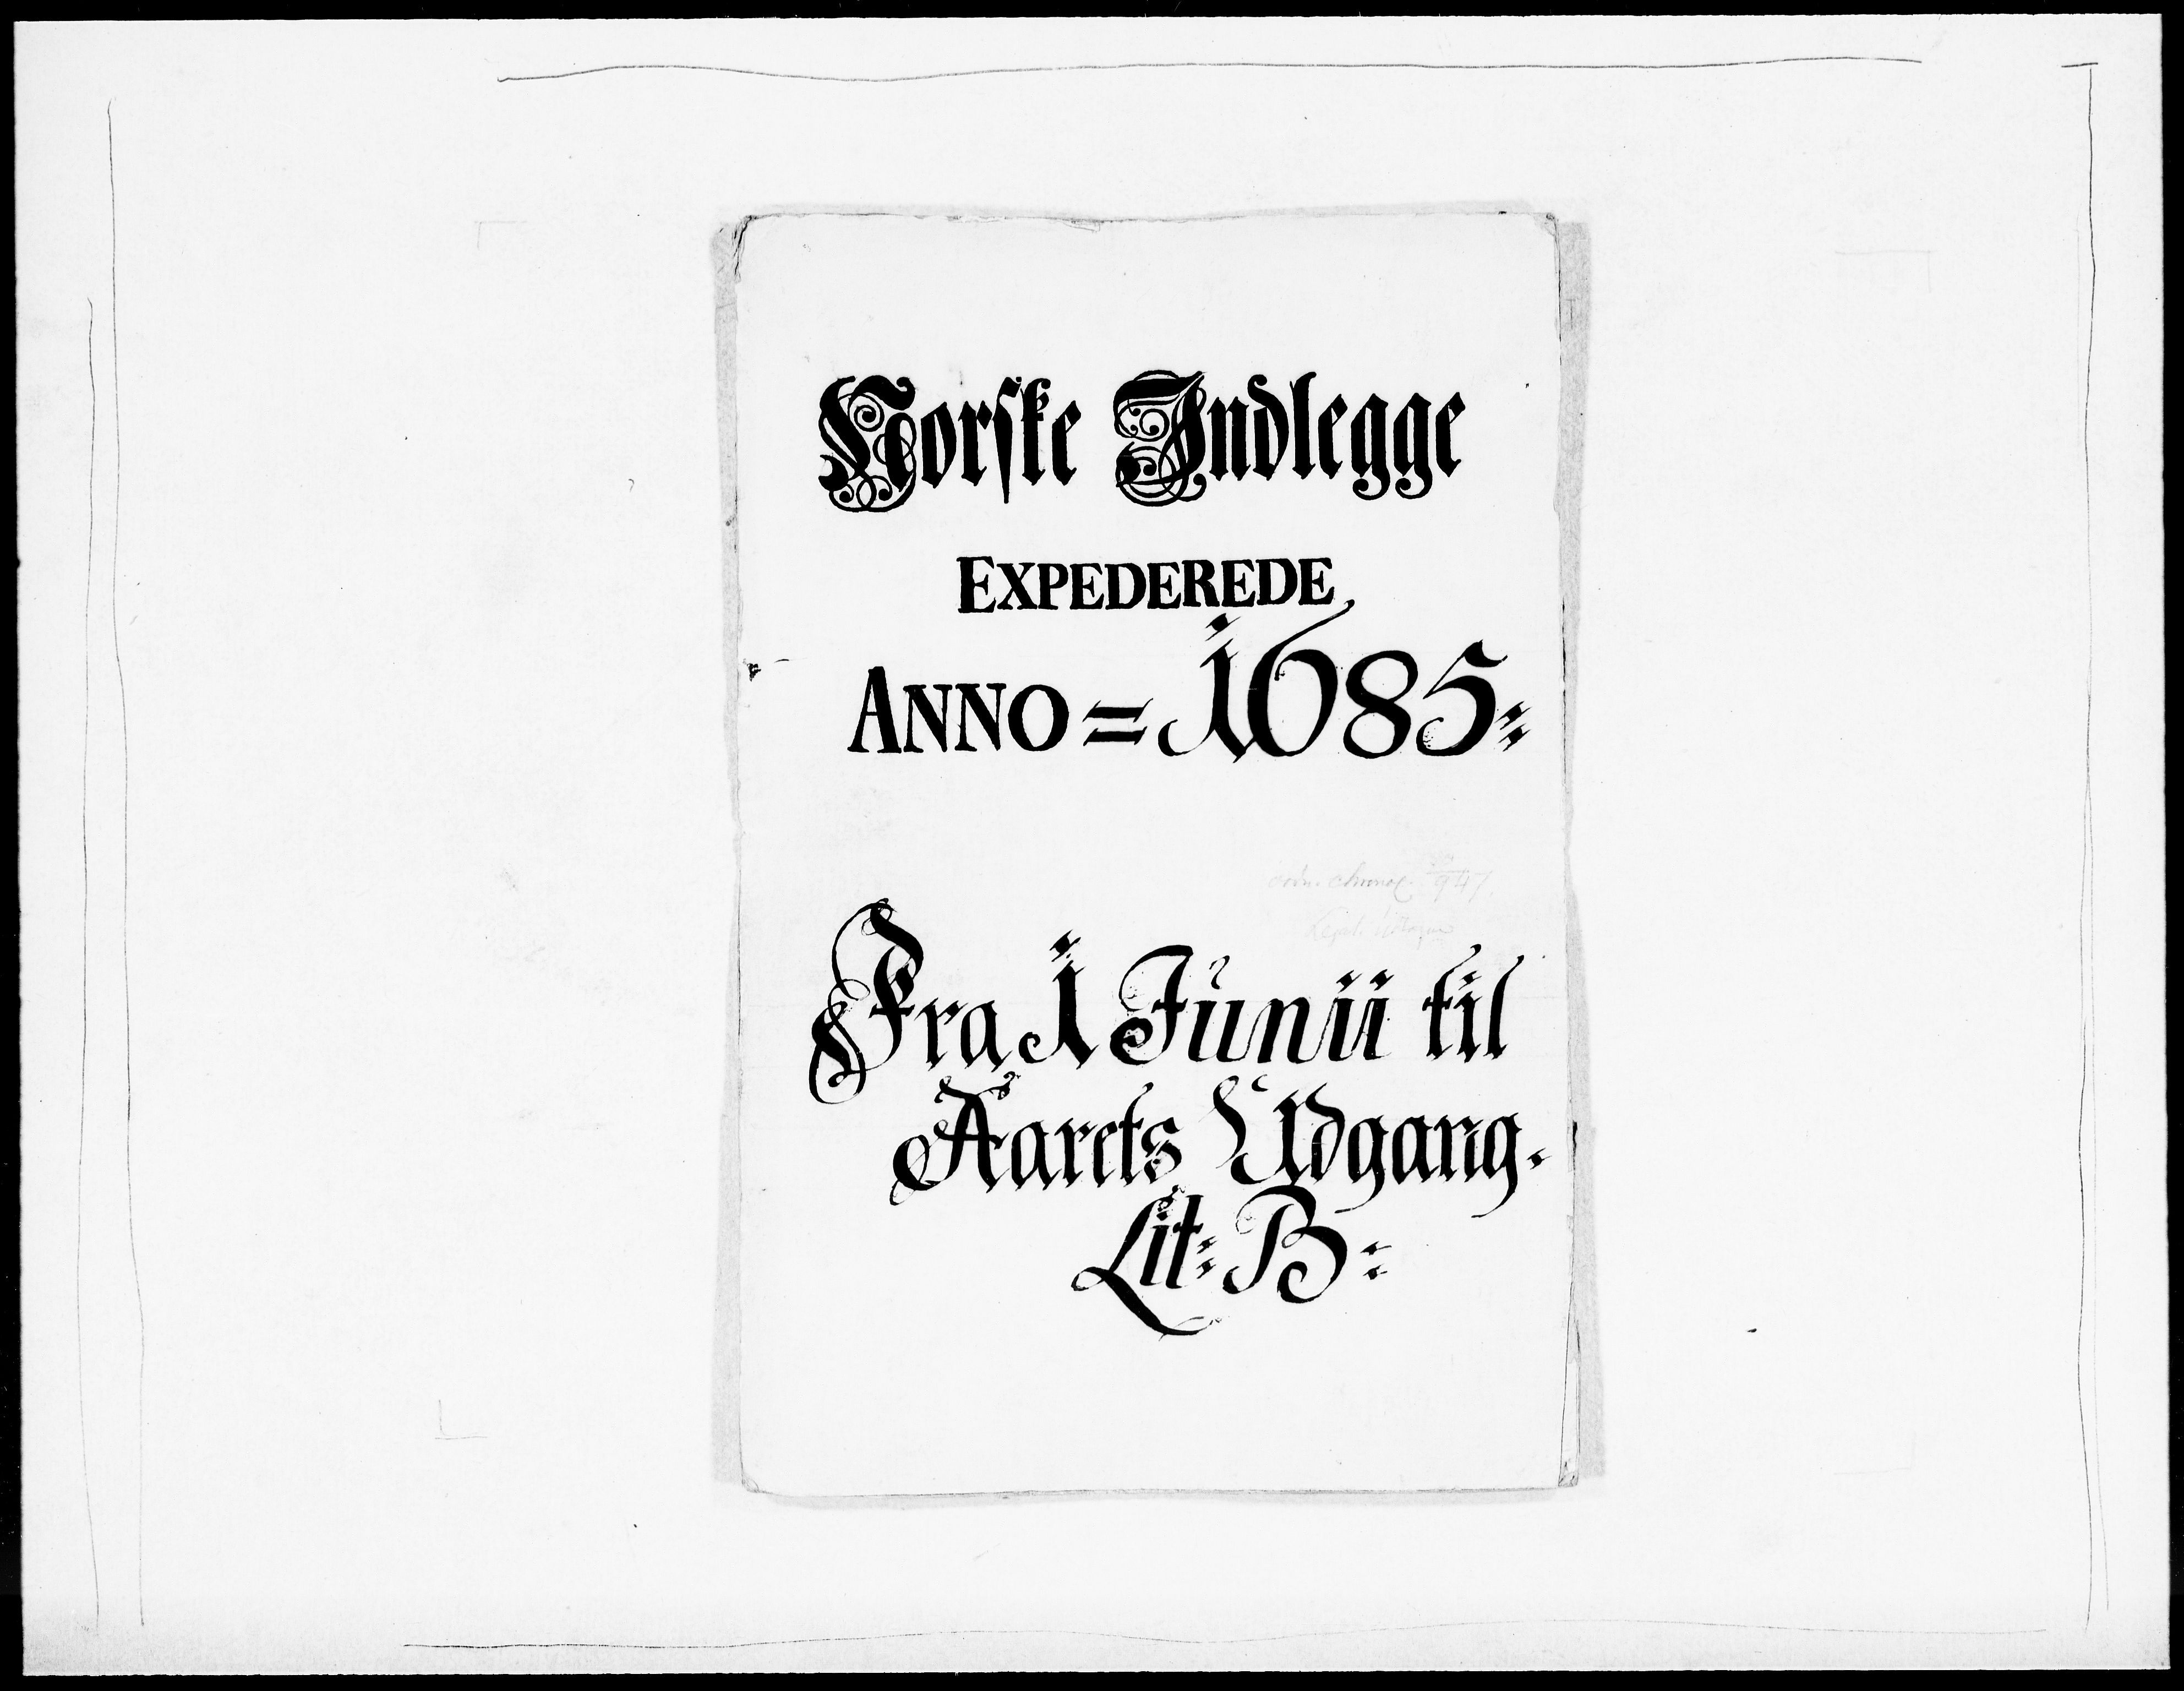 Norske Indlegge
EXPEDEREDE
ANNO = 1685 =
Fra 1 Junii til
Aarets Udgang.
Lit: B: